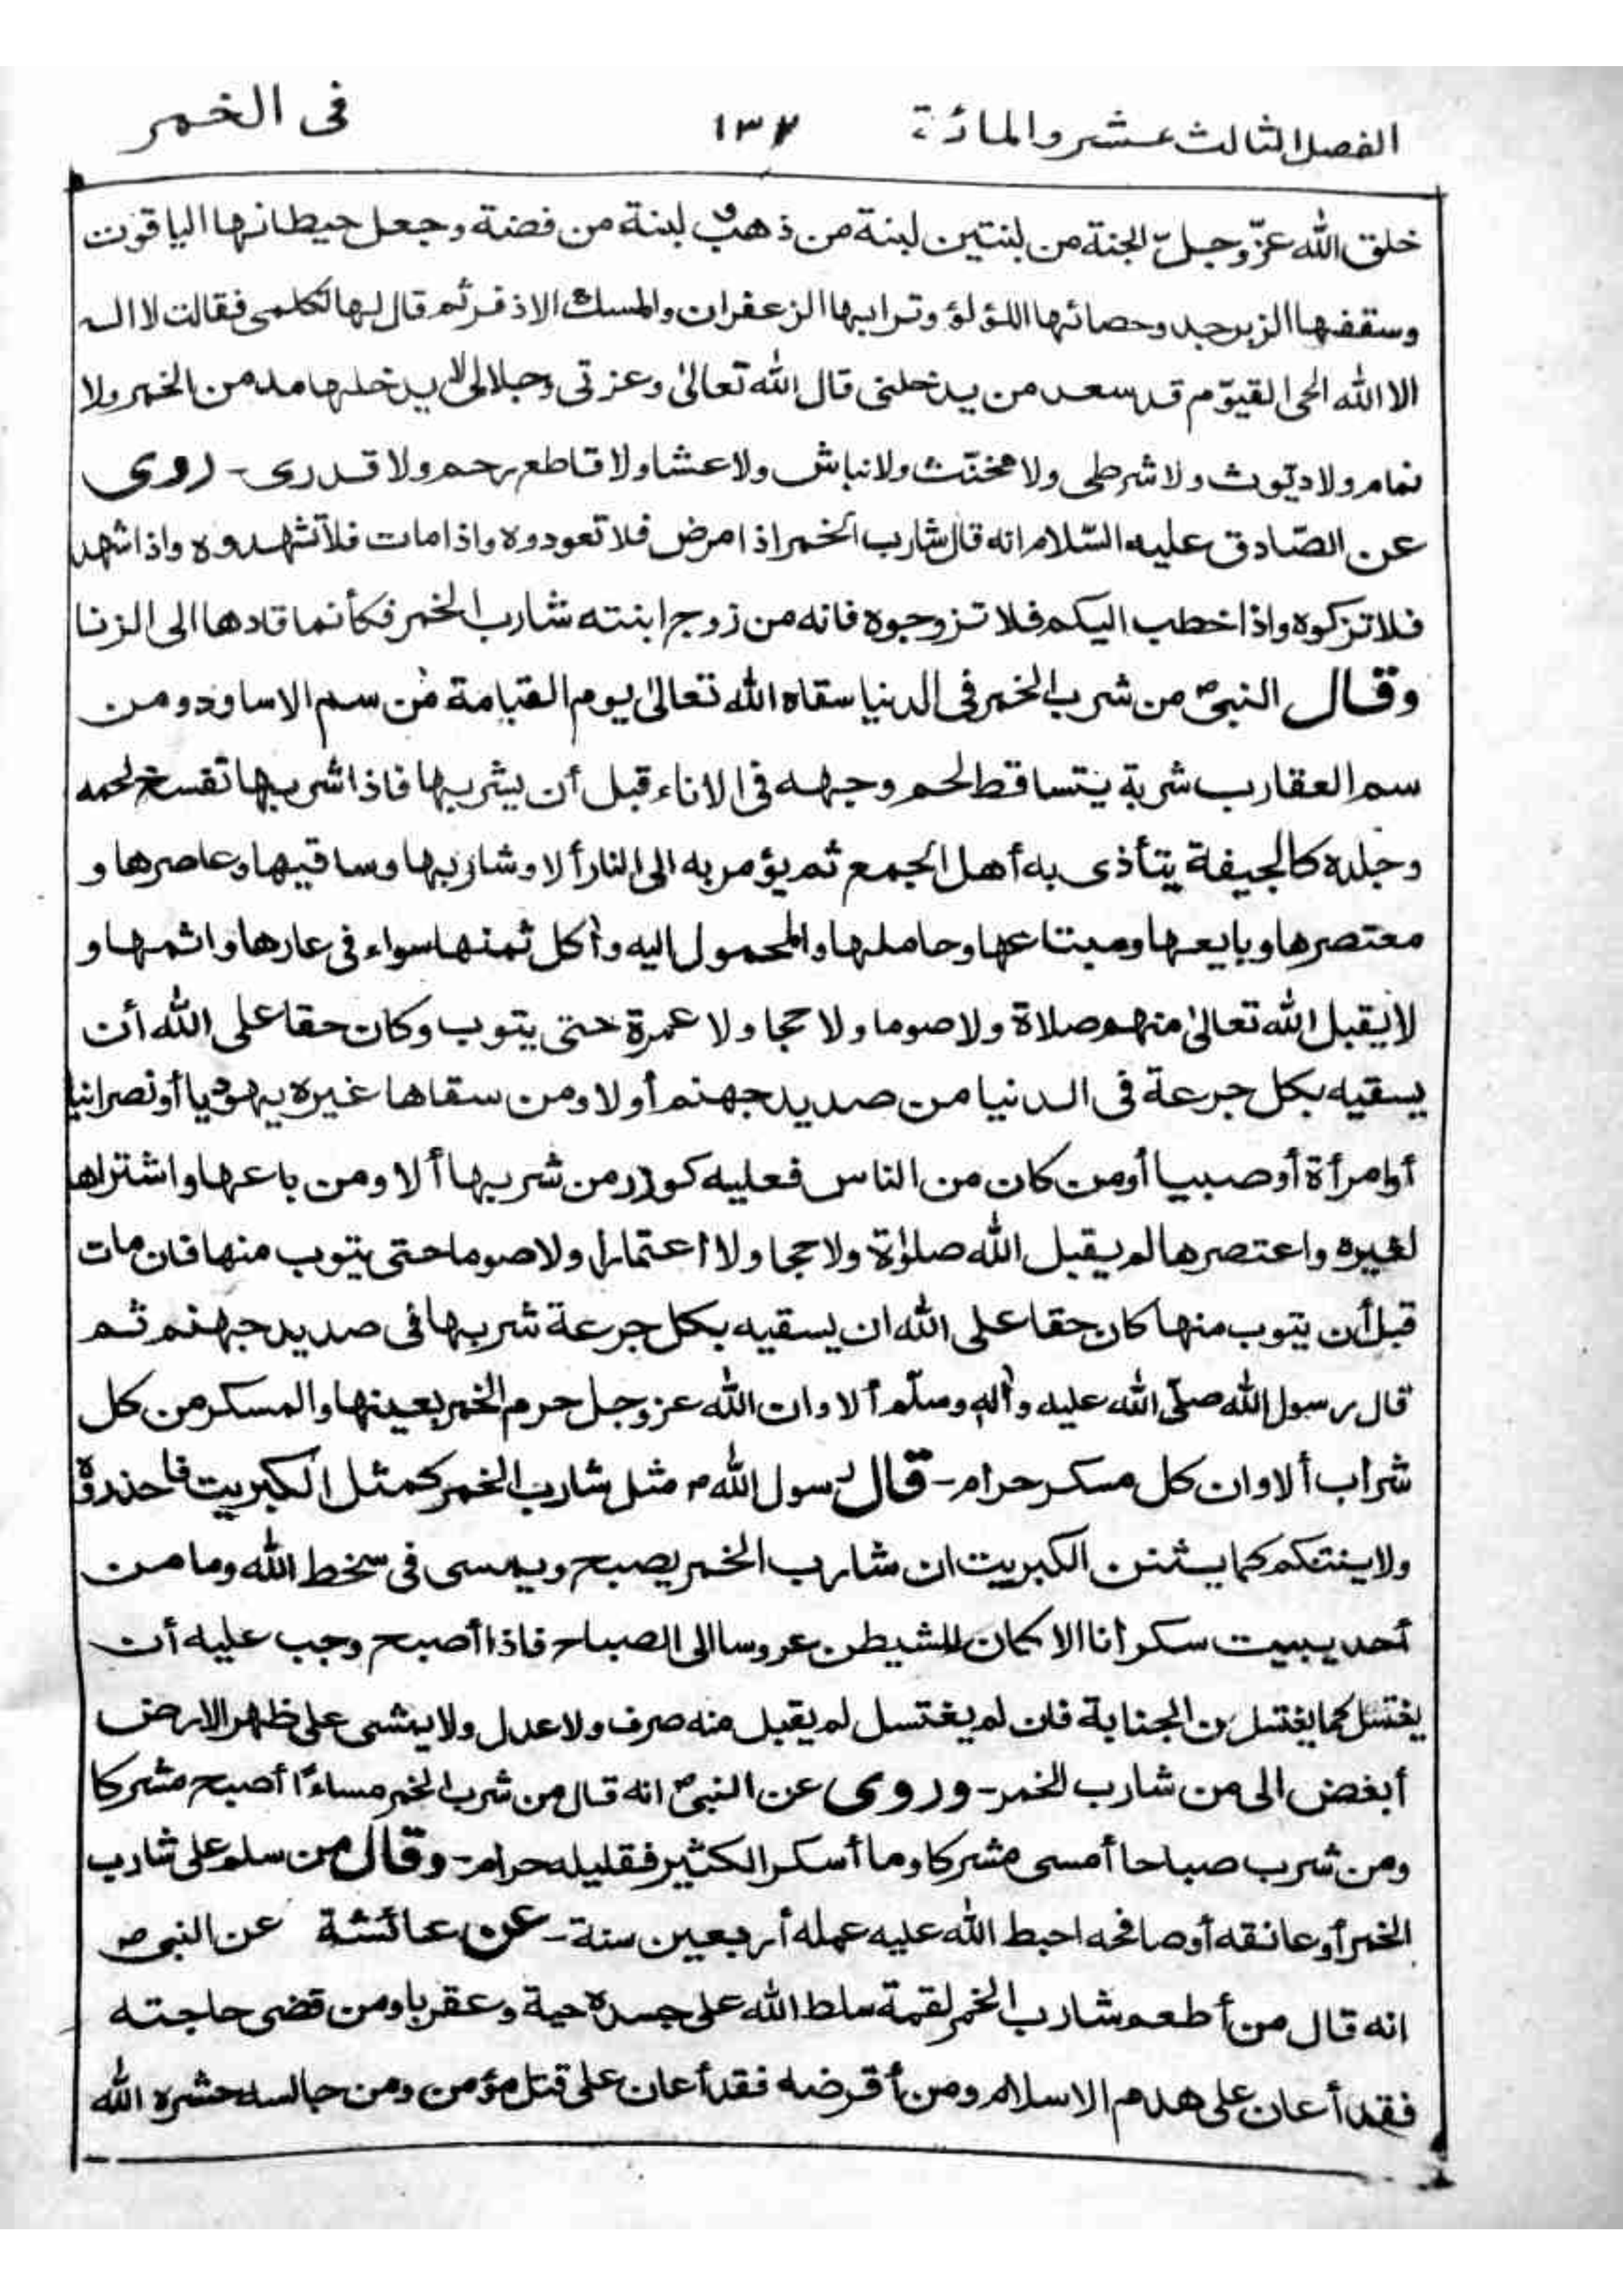 الفصل الثالث عشر والمائة ١٣٧ فى الخمر
خلق الله عزّ وجلّ الجنة من لبنتين لبنة من ذهب و لبنة من فضة وجعل حيطانها الياقوت
وسقفها الزبرجد وحصائها اللؤلؤ وترابها الزعفران والمسك الاذفر ثم قال لها تكلمى فقالت لا اله
الا الله الحى القيوّم قد سعد من يدخلنى قال الله تعالىٰ وعزتى وجلالى لا يدخلها مدمن الخمر ولا
نمام ولا ديّوث ولا شرطى ولا مخنّث ولا نباش ولا عشا ولا قاطع رحم ولا قدرى - روى
عن الصّادق عليه السّلام انه قال شارب الخمر اذا مرض فلا تعودوه واذا مات فلا تشهدوه واذا شهد
فلا تزكوه واذا خطب اليكم فلا تزوجوه فانه من زوج ابنته شارب الخمر فكأنما قادها الى الزنا
وقال النبىّ ص من شرب الخمر فى الدنيا سقاه الله تعالىٰ يوم القيامة من سم الاساود ومن
سم العقارب شربة يتساقط لحم وجهه فى الاناء قبل أن يشربها فاذا شربها تفسخ لحمه
وجلده كالجيفة يتأذى به أهل الجمع ثم يؤمر به الى النار ألا وشاربها وساقيها وعاصرها و
معتصرها وبايعها ومبتاعها وحاملها والمحمول اليه وآكل ثمنها سواء فى عارها واثمها و
لا يقبل الله تعالىٰ منهم صلاة ولا صوما ولا حجا ولا عمرة حتى يتوب وكان حقا على الله أن
يسقيه بكل جرعة فى الدنيا من صديد جهنم أولا ومن سقاها غيره يهوديا أو نصرانيا
أو امرأة أو صبيا أو من كان من الناس فعليه كوزر من شربها ألا ومن باعها واشتراها
لغيره واعتصرها لم يقبل الله صلوٰة ولا حجا ولا اعتمارا ولا صوما حتى يتوب منها فان مات
قبل أن يتوب منها كان حقا على الله ان يسقيه بكل جرعة شربها فى صديد جهنم ثم
قال رسول الله صلّى الله عليه وآله وسلّم ألا وان الله عز وجل حرم الخمر بعينها والمسكر من كل
شراب ألا وان كل مسكر حرام - قال رسول الله م مثل شارب الخمر كمثل الكبريت فاحذروه
ولا ينتنكم كما يثنن الكبريت ان شارب الخمر يصبح ويمسى فى سخط الله وما من
أحد يبيت سكرانا الا كان للشيطن عروسا الى الصباح فاذا أصبح وجب عليه أن
يغتسل كما يغتسل من الجنابة فان لم يغتسل لم يقبل منه صرف ولا عدل ولا يمشى على ظهر الارض
أبغض الى من شارب الخمر - وروى عن النبىّ ص انه قال من شرب الخمر مساءً ا أصبح مشركا
ومن شرب صباحا أمسى مشركا وما أسكر الكثير فقليله حرام - وقال من سلم على شارب
الخمر أو عانقه أو صافحه احبط الله عليه عمله أربعين سنة - عن عائشة عن النبى ص
انه قال من أطعم شارب الخمر لقمة سلط الله على جسده حية وعقربا ومن قضى حاجته
فقد أعان على هدم الاسلام ومن أقرضه فقد أعان على قتل مؤمن ومن جالسه حشره الله